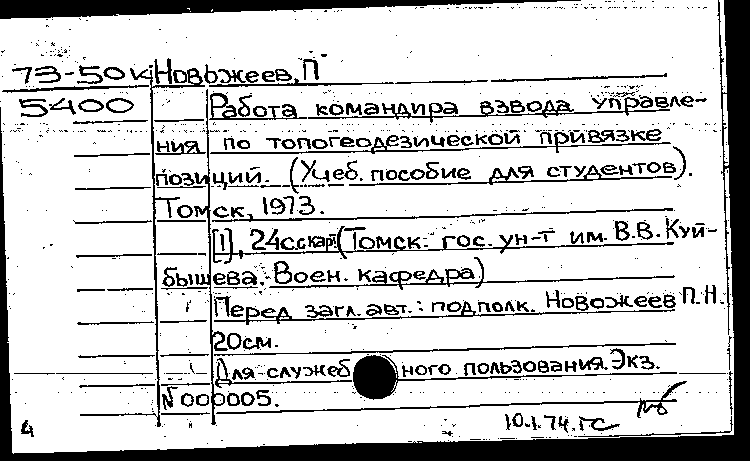 73-50к Новожеев, П
5400 Работа командира взвода управле-
ния по топогеодезической привязке
позиций. (Учеб. пособие для студентов).
Томск, 1973.
[1], 24с.скарт (Томск. гос. ун-т им. В.В. Куй-
бышева. Воен. кафедра)
Перед загл. авт.: подполк. Новожеев П.Н.
20см.
Для служебного пользования. Экз.
N000005.
4 10.1.74.гс